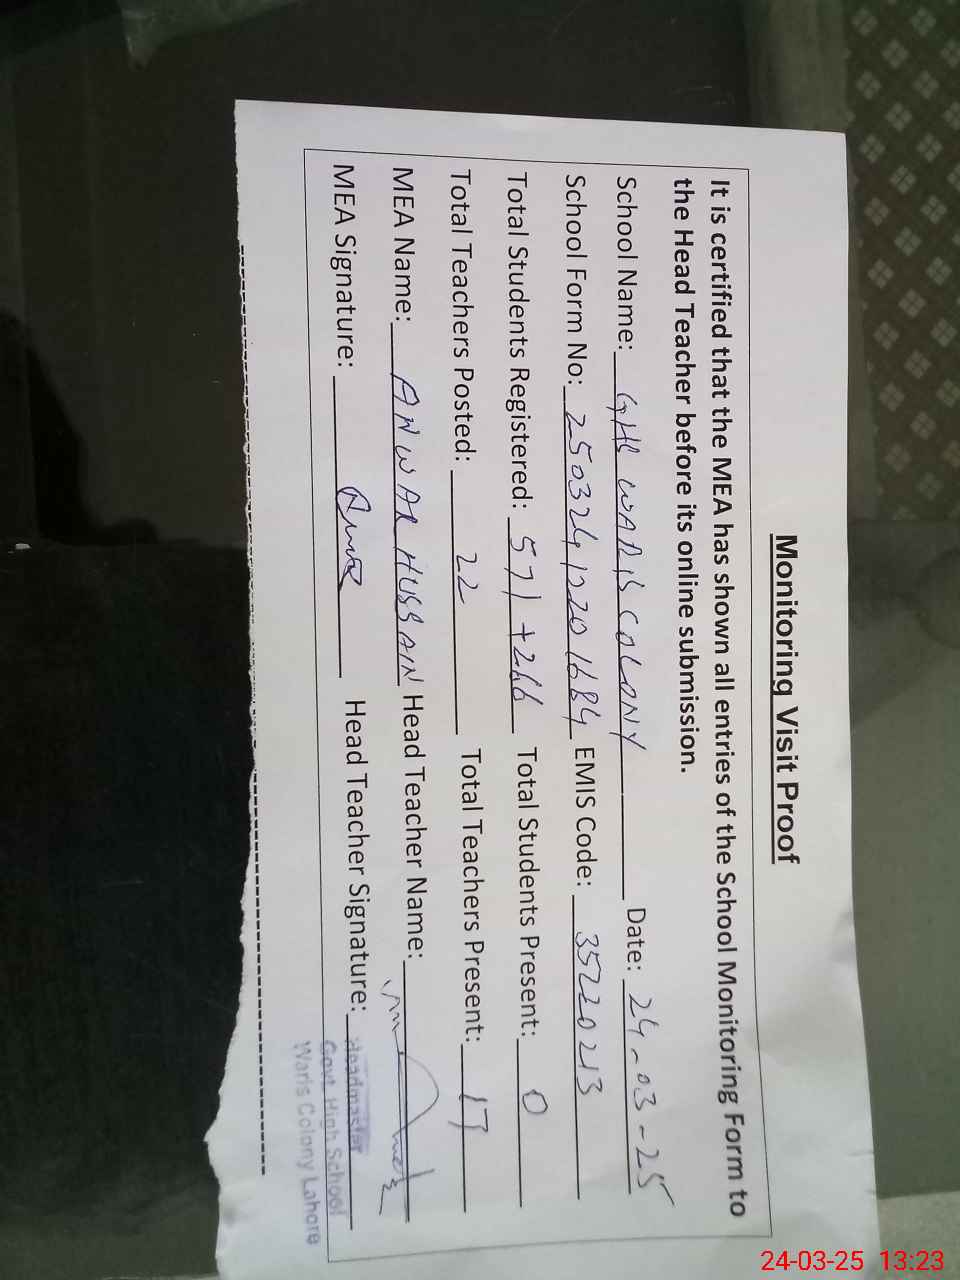 Monitoring Visit Proof
It is certified that the MEA has shown all entries of the School Monitoring Form to
the Head Teacher before its online submission.
School Name: GHS WARIS COLONY Date: 24-03-25
School Form No: 25032412201684 EMIS Code: 35220213
Total Students Registered: 571+266 Total Students Present: 0
Total Teachers Posted: 22 Total Teachers Present: 17
MEA Name: ANWAR HUSSAIN Head Teacher Name:
MEA Signature: Head Teacher Signature:
Headmaster
Govt. High School
Waris Colony Lahore
24-03-25 13:23